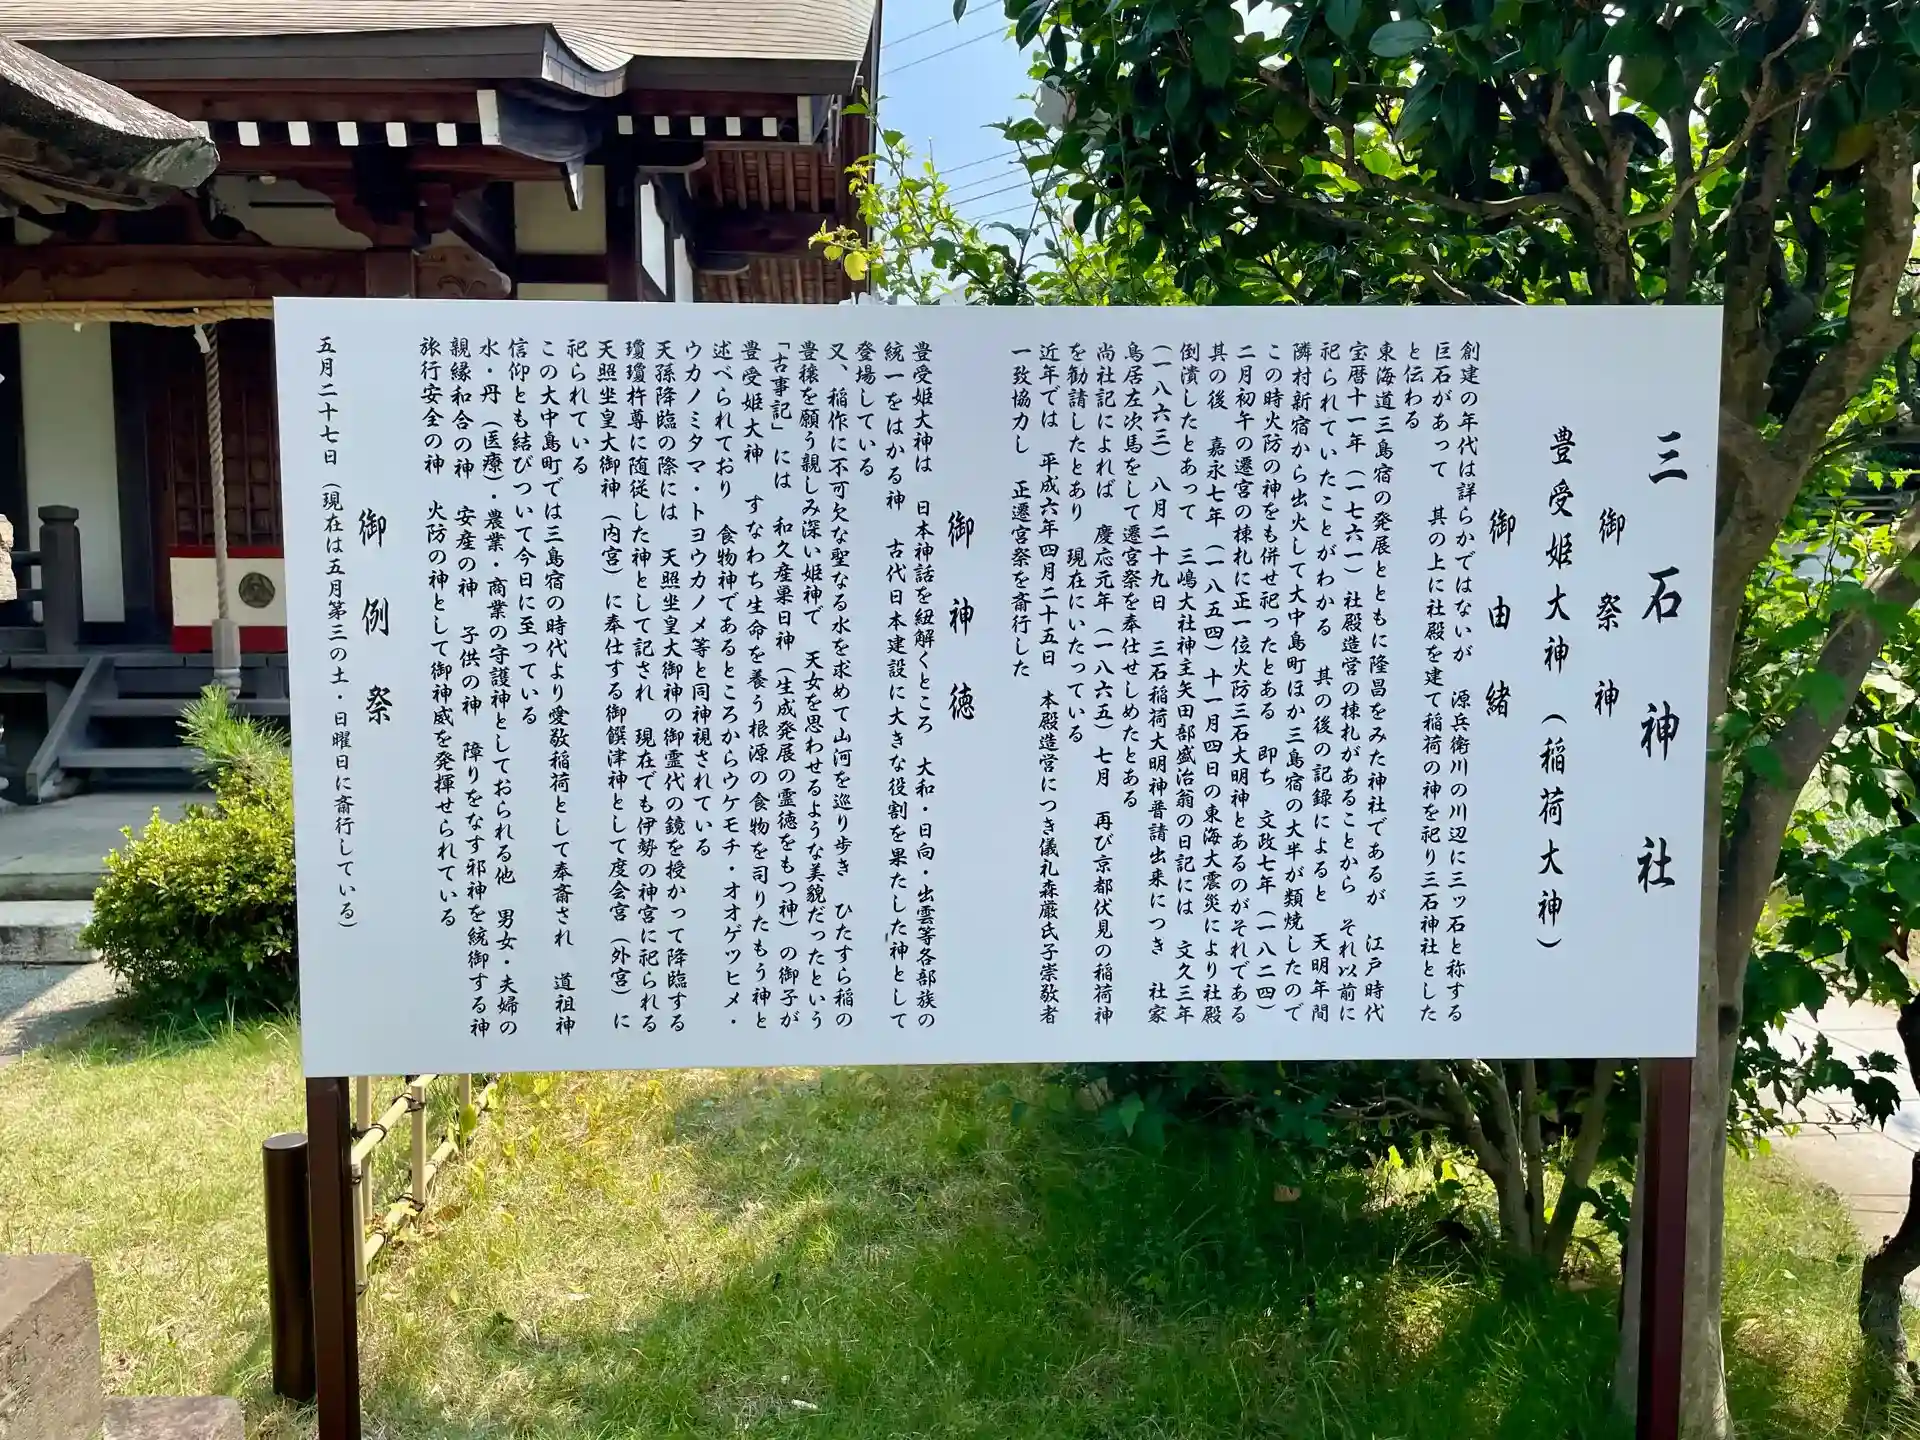 三石神社
御祭神
豊受姫大神（稲荷大神）
御由緒
創建の年代は詳らかではないが　源兵衛川の川辺に三ッ石と称する
巨石があって　其の上に社殿を建て稲荷の神を祀り三石神社とした
と伝わる
東海道三島宿の発展とともに隆昌をみた神社であるが　江戸時代
宝暦十一年（一七六一）社殿造営の棟札があることから　それ以前に
祀られていたことがわかる　其の後の記録によると　天明年間
隣村新宿から出火して大中島町ほか三島宿の大半が類焼したので
この時火防の神をも併せ祀ったとある　即ち　文政七年（一八二四）
二月初午の遷宮の棟札に正一位火防三石大明神とあるのがそれである
其の後　嘉永七年（一八五四）十一月四日の東海大震災により社殿
倒潰したとあって　三嶋大社神主矢田部盛治翁の日記には　文久三年
（一八六三）八月二十九日　三石稲荷大明神普請出来につき　社家
鳥居左次馬をして遷宮祭を奉仕せしめたとある
尚社記によれば　慶応元年（一八六五）七月　再び京都伏見の稲荷神
を勧請したとあり　現在にいたっている
近年では　平成六年四月二十五日　本殿造営につき儀礼森厳氏子崇敬者
一致協力し　正遷宮祭を斎行した
御神徳
豊受姫大神は　日本神話を紐解くところ　大和・日向・出雲等各部族の
統一をはかる神　古代日本建設に大きな役割を果たした神として
登場している
又、稲作に不可欠な聖なる水を求めて山河を巡り歩き　ひたすら稲の
豊穣を願う親しみ深い姫神で　天女を思わせるような美貌だったという
「古事記」には　和久産巣日神（生成発展の霊徳をもつ神）の御子が
豊受姫大神　すなわち生命を養う根源の食物を司りたもう神と
述べられており　食物神であるところからウケモチ・オオゲツヒメ・
ウカノミタマ・トヨウカノメ等と同神視されている
天孫降臨の際には　天照坐皇大御神の御霊代の鏡を授かって降臨する
瓊瓊杵尊に随従した神として記され　現在でも伊勢の神宮に祀られる
天照坐皇大御神（内宮）に奉仕する御饌津神として度会宮（外宮）に
祀られている
この大中島町では三島宿の時代より愛敬稲荷として奉斎され　道祖神
信仰とも結びついて今日に至っている
水・丹（医療）・農業・商業の守護神としておられる他　男女・夫婦の
親縁和合の神　安産の神　子供の神　障りをなす邪神を統御する神
旅行安全の神　火防の神として御神威を発揮せられている
御例祭
五月二十七日（現在は五月第三の土・日曜日に斎行している）